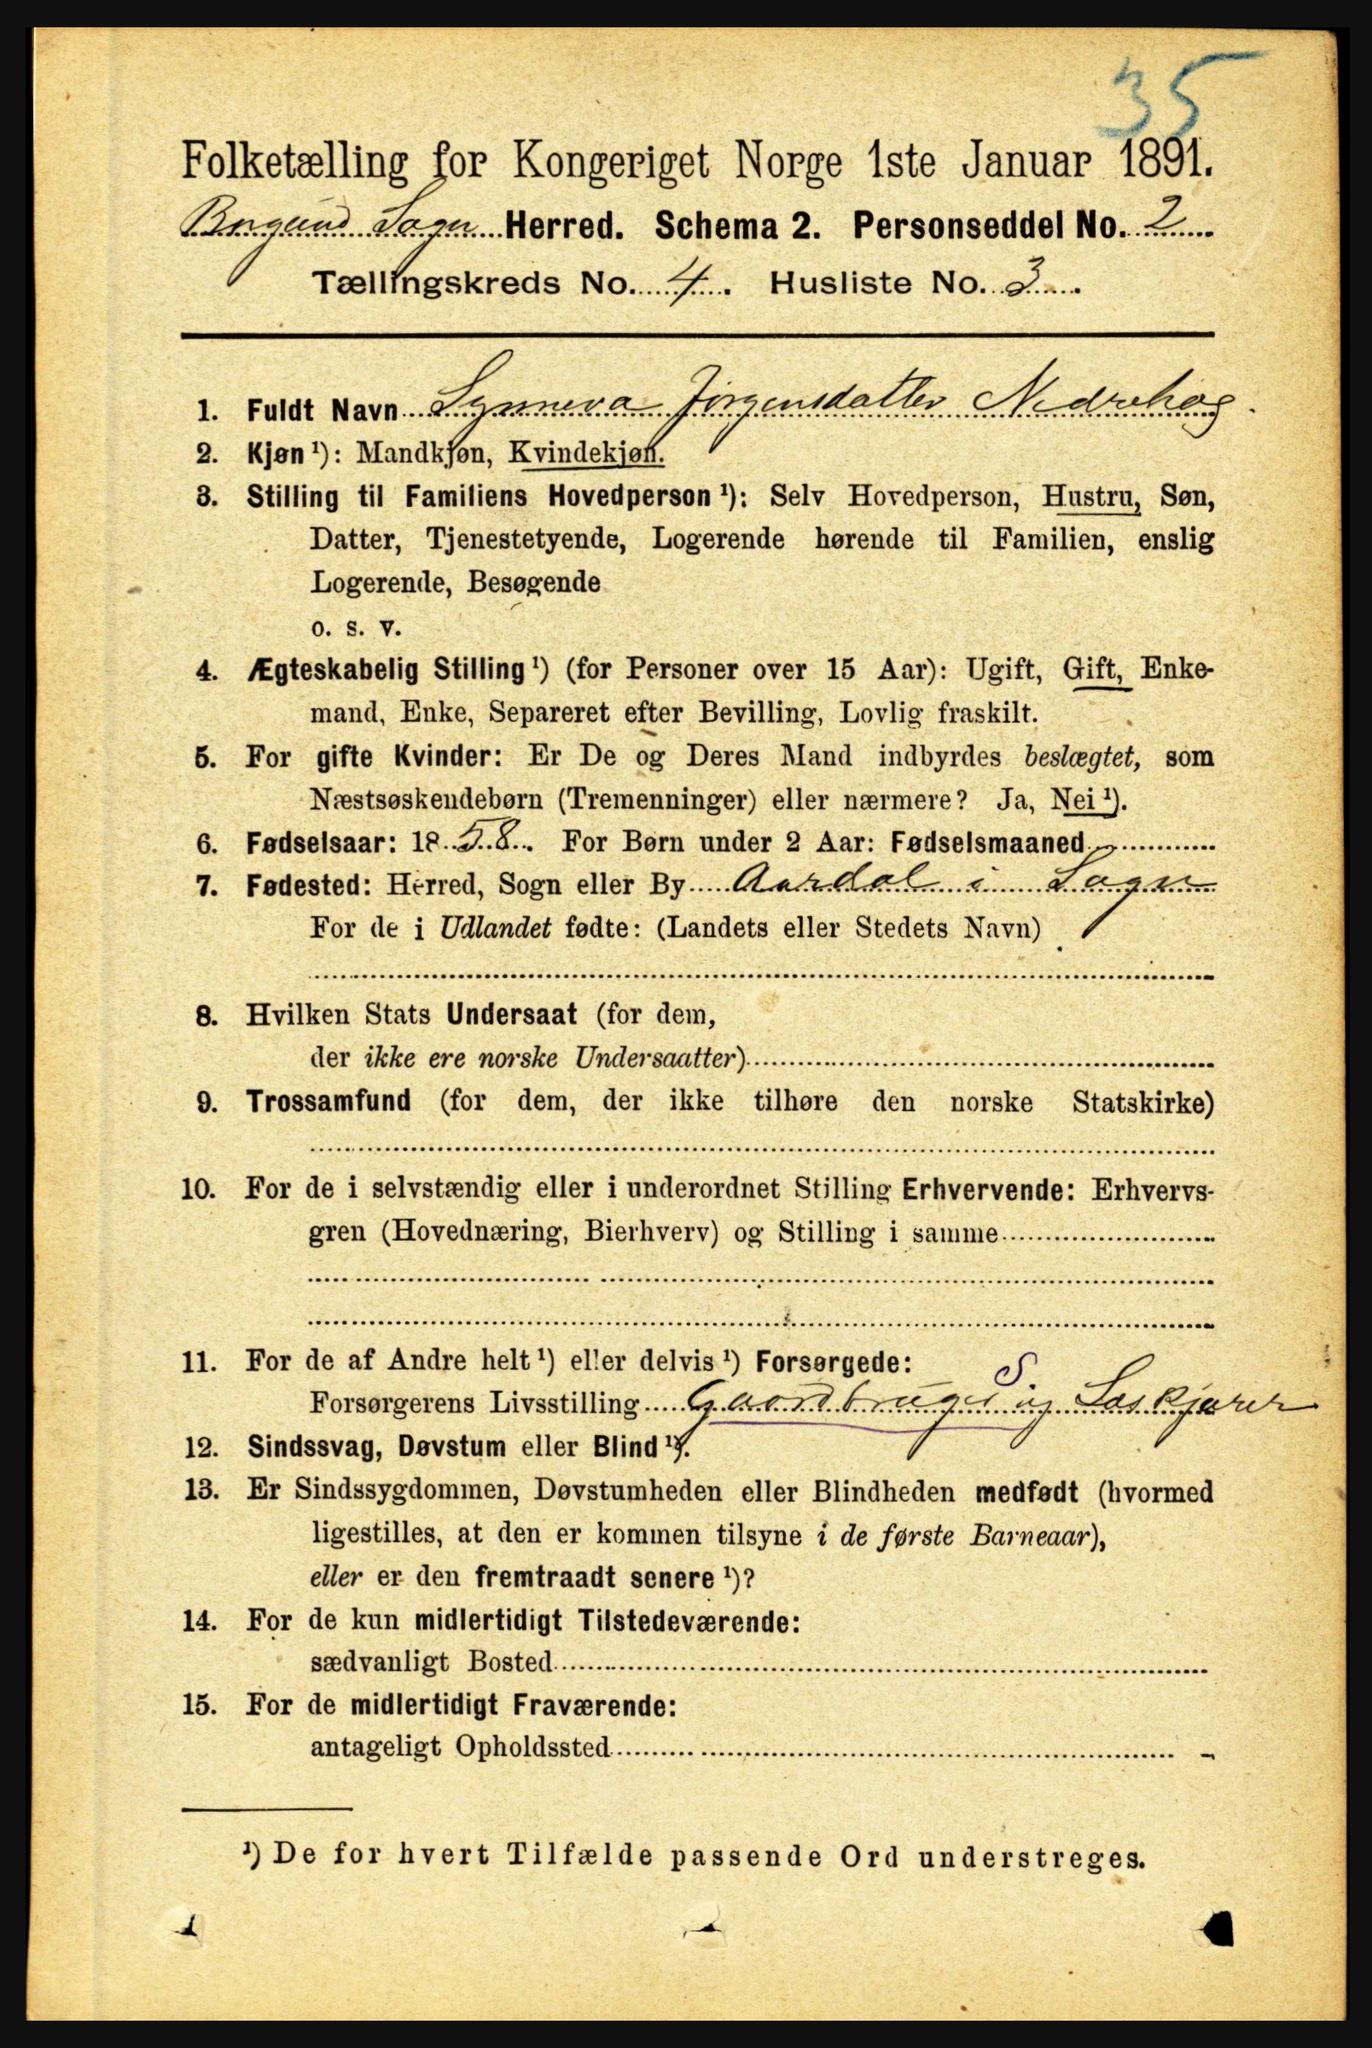 35
Folketælling for Kongeriget Norge 1ste Januar 1891.
Borgund Sogn Herred. Schema 2. Personseddel No. 2
Tællingskreds No. 4. Husliste No. 3.
1. Fuldt Navn Synneva Jørgensdatter Nedrehag
2. Kjøn ¹): Mandkjøn, Kvindekjøn.
3. Stilling til Familiens Hovedperson ¹): Selv Hovedperson, Hustru, Søn,
Datter, Tjenestetyende, Logerende hørende til Familien, enslig
Logerende, Besøgende
o. s. v.
4. Ægteskabelig Stilling ¹) (for Personer over 15 Aar): Ugift, Gift, Enke-
mand, Enke, Separeret efter Bevilling, Lovlig fraskilt.
5. For gifte Kvinder: Er De og Deres Mand indbyrdes beslægtet, som
Næstsøskendebørn (Tremenninger) eller nærmere? Ja, Nei ¹).
6. Fødselsaar: 1858. For Børn under 2 Aar: Fødselsmaaned
7. Fødested: Herred, Sogn eller By Aardal i Sogn
For de i Udlandet fødte: (Landets eller Stedets Navn)
8. Hvilken Stats Undersaat (for dem,
der ikke ere norske Undersaatter)
9. Trossamfund (for dem, der ikke tilhøre den norske Statskirke)
10. For de i selvstændig eller i underordnet Stilling Erhvervende: Erhvervs-
gren (Hovednæring, Bierhverv) og Stilling i samme
11. For de af Andre helt ¹) eller delvis ¹) Forsørgede:
S
Forsørgerens Livsstilling Gaardbruger og Læskjører
12. Sindssvag, Døvstum eller Blind ¹).
13. Er Sindssygdommen, Døvstumheden eller Blindheden medfødt (hvormed
ligestilles, at den er kommen tilsyne i de første Barneaar),
eller er den fremtraadt senere ¹)?
14. For de kun midlertidigt Tilstedeværende:
sædvanligt Bosted
15. For de midlertidigt Fraværende:
antageligt Opholdssted
¹) De for hvert Tilfælde passende Ord understreges.